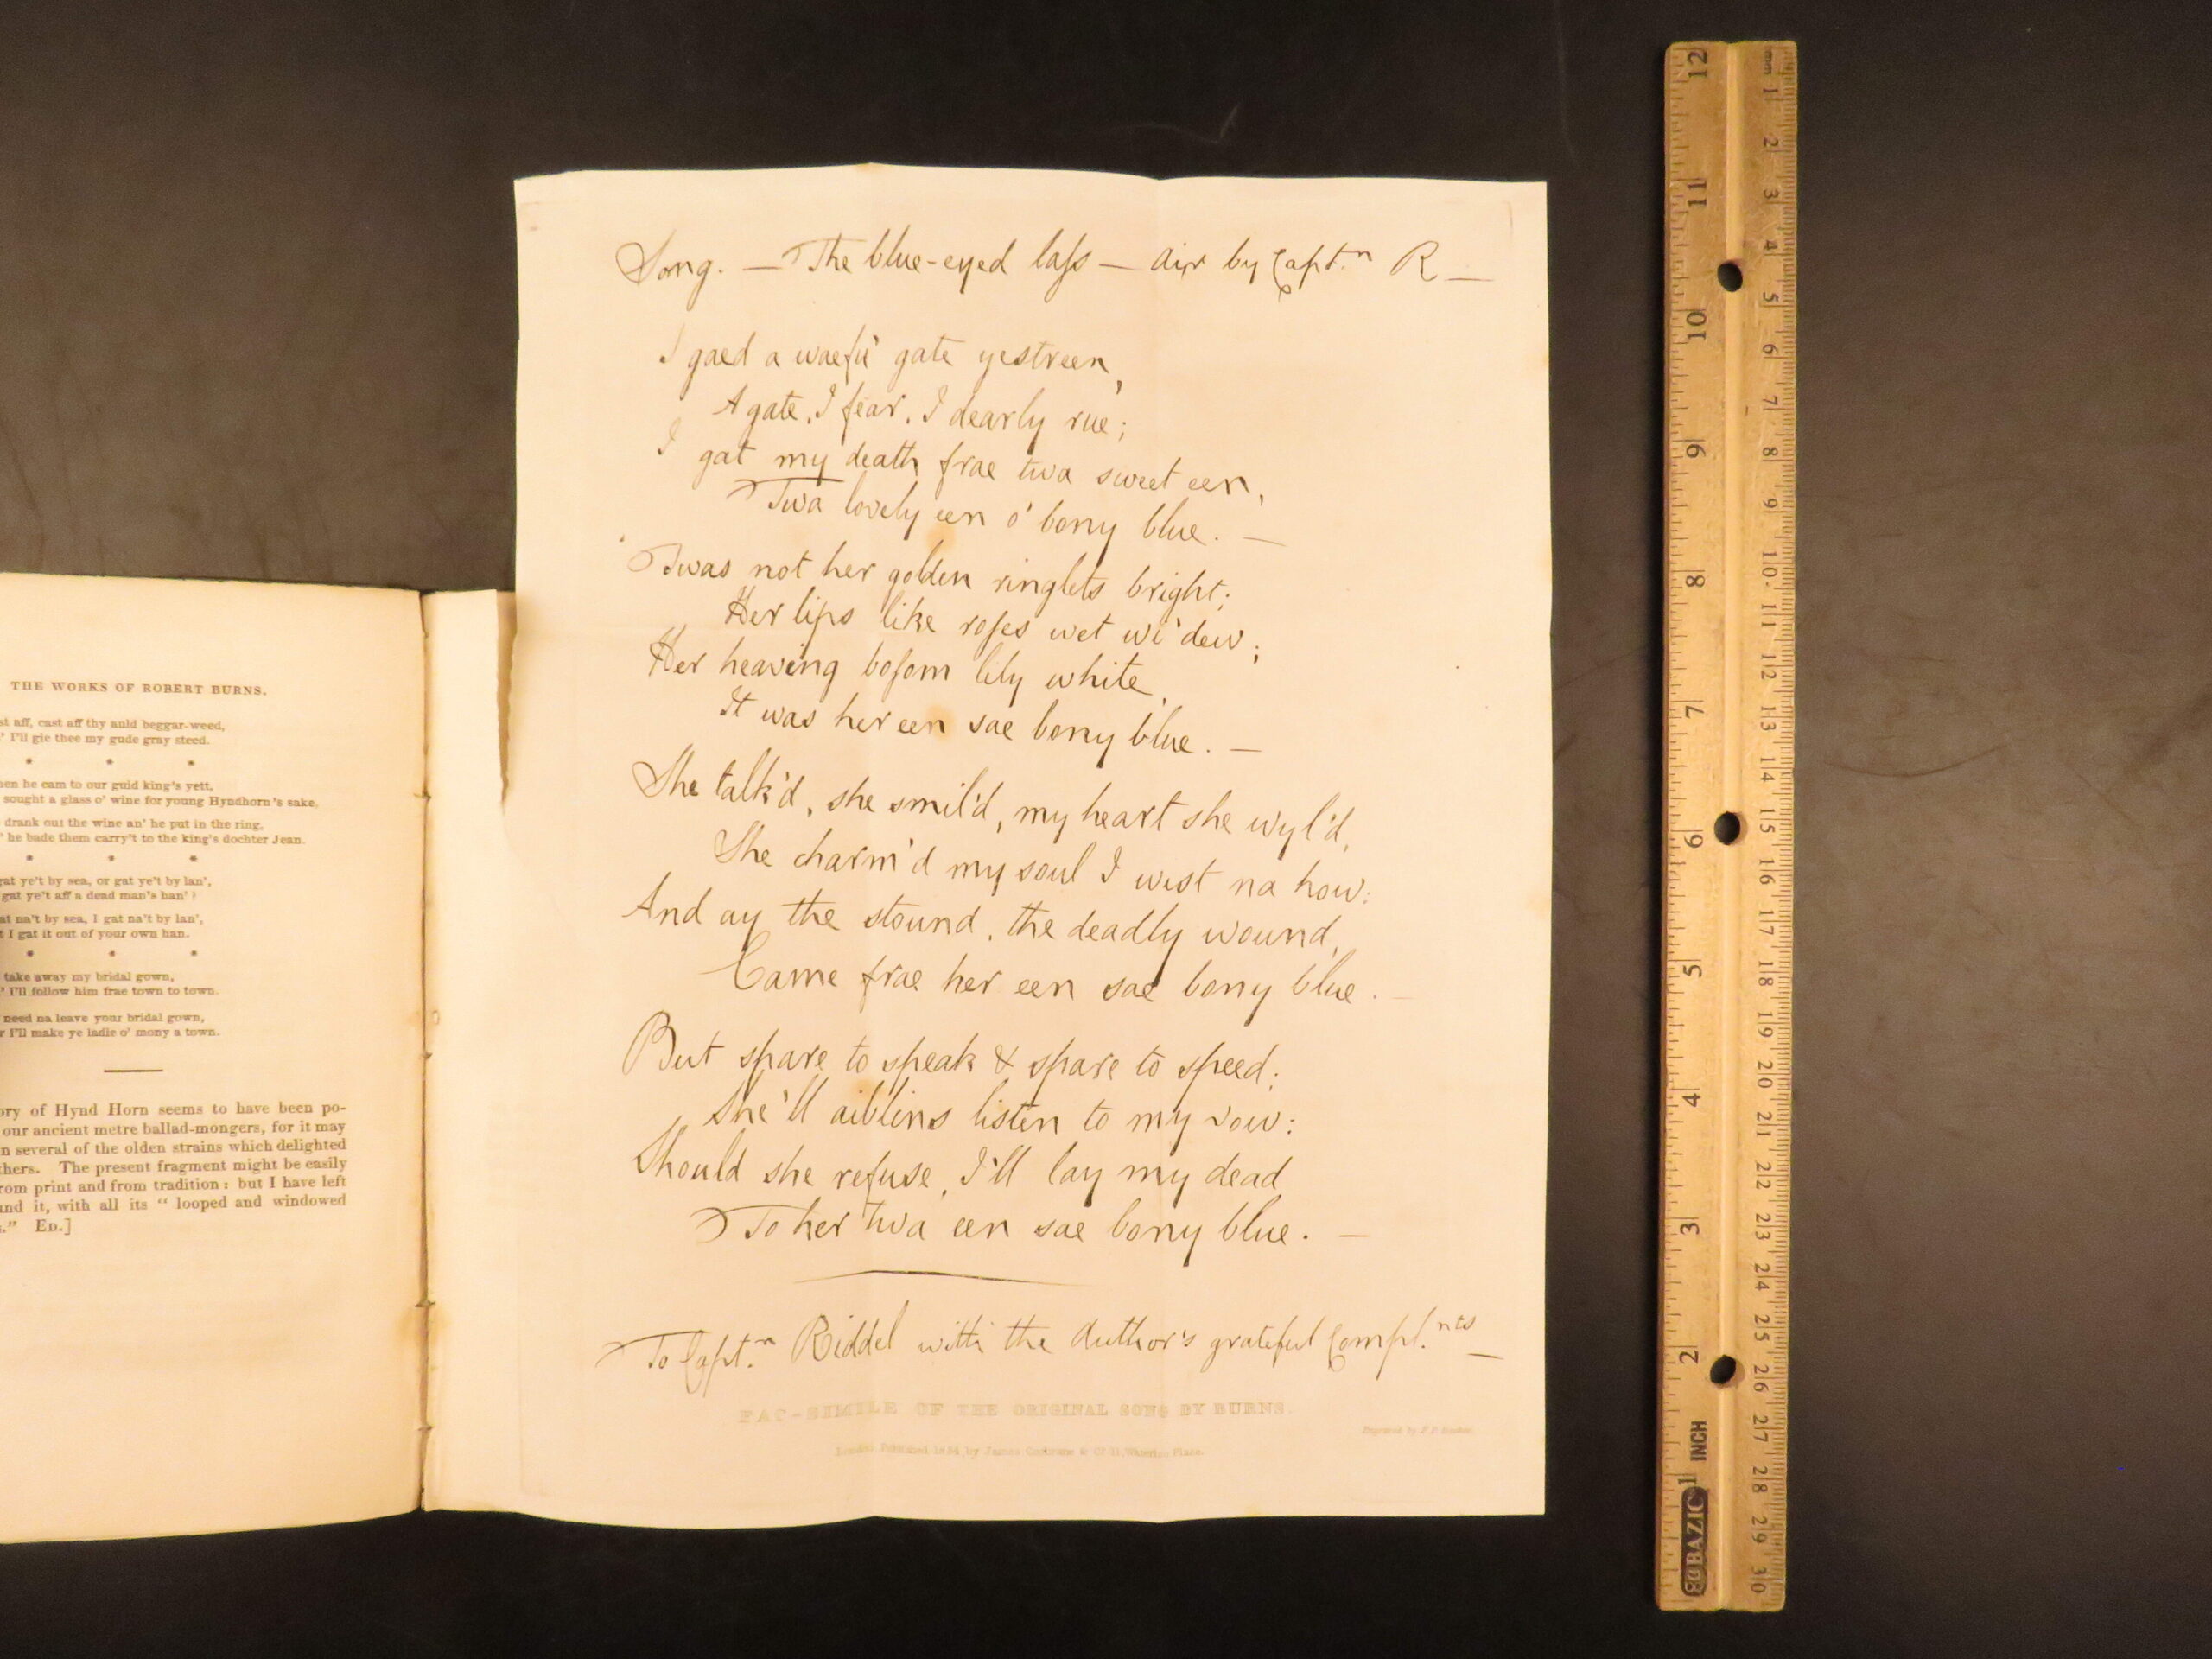 THE WORKS OF ROBERT BURNS.
aff, cast aff thy auld beggar-weed,
I'll gie thee my gude gray steed.
* * *
he cam to our guid king's yett,
sought a glass o' wine for young Hyndhorn's sake.
drank out the wine an' he put in the ring,
he bade them carry't to the king's dochter Jean.
* * *
gat ye't by sea, or gat ye't by lan',
gat ye't aff a dead man's han'
na't by sea, I gat na't by lan',
I gat it out of your own han.
* * *
take away my bridal gown,
I'll follow him frae town to town.
need na leave your bridal gown,
I'll make ye ladie o' mony a town.
of Hynd Horn seems to have been po-
our ancient metre ballad-mongers, for it may
several of the olden strains which delighted
The present fragment might be easily
print and from tradition: but I have left
it, with all its "looped and windowed
" ED.]
Song. — The blue-eyed laſs — air by Capt.n R —
I gaed a waefu' gate yestreen,
A gate, I fear, I dearly rue;
I gat my death frae twa sweet een,
Twa lovely een o' bony blue. —
Twas not her golden ringlets bright;
Her lips like roſes wet wi' dew;
Her heaving boſom lily white,
It was her een sae bony blue. —
She talk'd, she smil'd, my heart she wyl'd,
She charm'd my soul I wist na how:
And ay the stound, the deadly wound,
Came frae her een sae bony blue. —
But spare to speak & spare to speed;
She'll aiblins listen to my vow:
Should she refuse, I'll lay my dead
To her twa een sae bony blue. —
To Capt.n Riddel with the Author's grateful Compl.nts —
FAC-SIMILE OF THE ORIGINAL SONG BY BURNS.
Engraved by
London Published 1834 by James Cochrane & Co 11, Waterloo Place.
12 11 10 9 8 7 6 5 4 3 2 1 INCH
BAZIC
mm 1 2 3 4 5 6 7 8 9 10 11 12 13 14 15 16 17 18 19 20 21 22 23 24 25 26 27 28 29 30